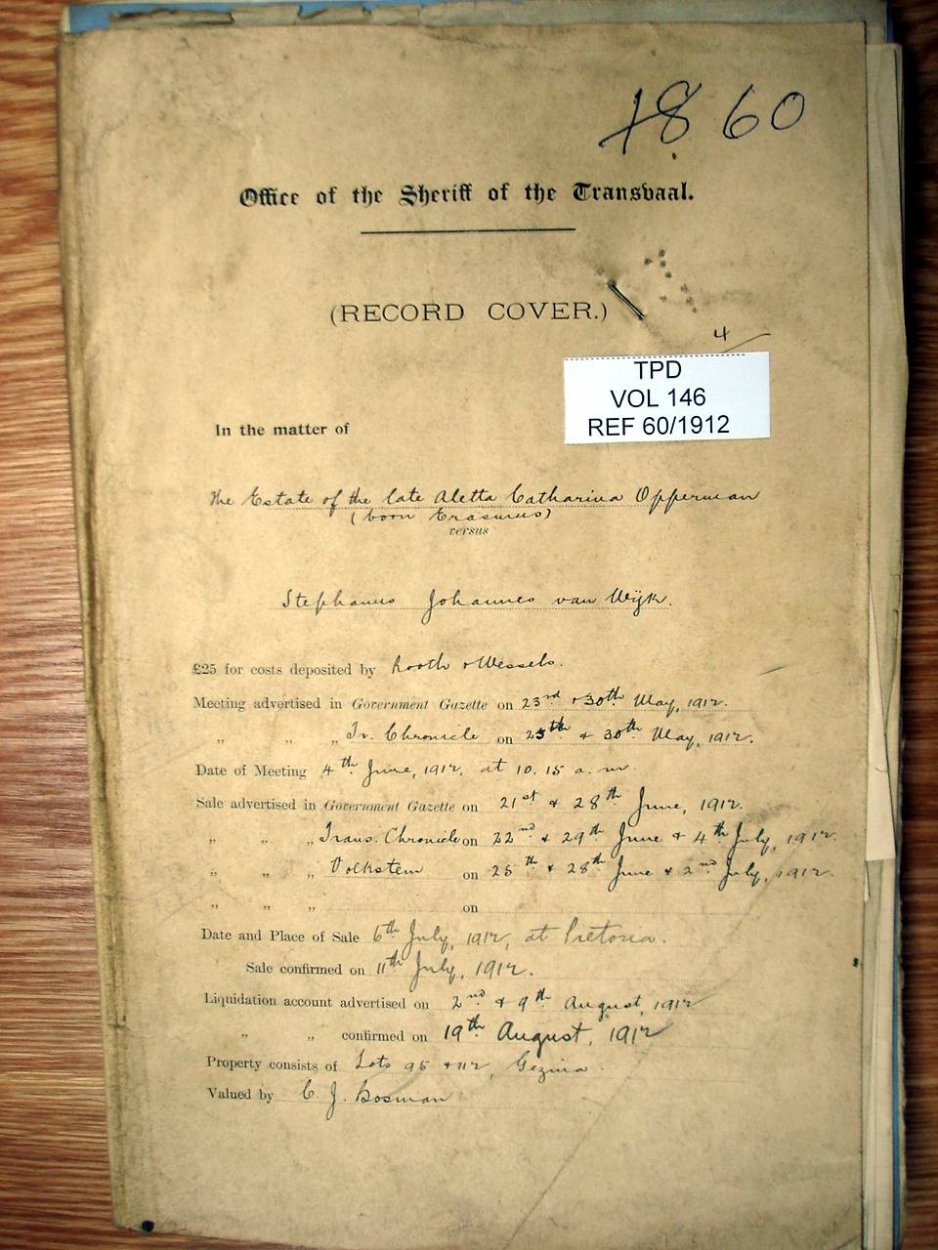 1860
Office of the Sheriff of the Transvaal.
(RECORD COVER.)
4
TPD
VOL 146
REF 60/1912
In the matter of
The Estate of the late Aletta Catharina Opperman
(born Erasmus)
versus
Stephanus Johannes van Wijk.
£25 for costs deposited by Rooth & Wessels.
Meeting advertised in Government Gazette on 23rd & 30th May, 1912.
„ „ „ Tr. Chronicle on 25th & 30th May, 1912.
Date of Meeting 4th June, 1912, at 10.15 a.m
Sale advertised in Government Gazette on 21st & 28th June, 1912.
„ „ „ Trans. Chronicle on 22nd & 29th June & 4th July, 1912.
„ „ „ Volkstem on 25th & 28th June & 2nd July, 1912.
„ „ „ on
Date and Place of Sale 6th July, 1912, at Pretoria.
Sale confirmed on 11th July, 1912.
Liquidation account advertised on 2nd & 9th August, 1912
„ „ confirmed on 19th August, 1912
Property consists of Lots 95 & 112, Gezina.
Valued by C. J. Bosman